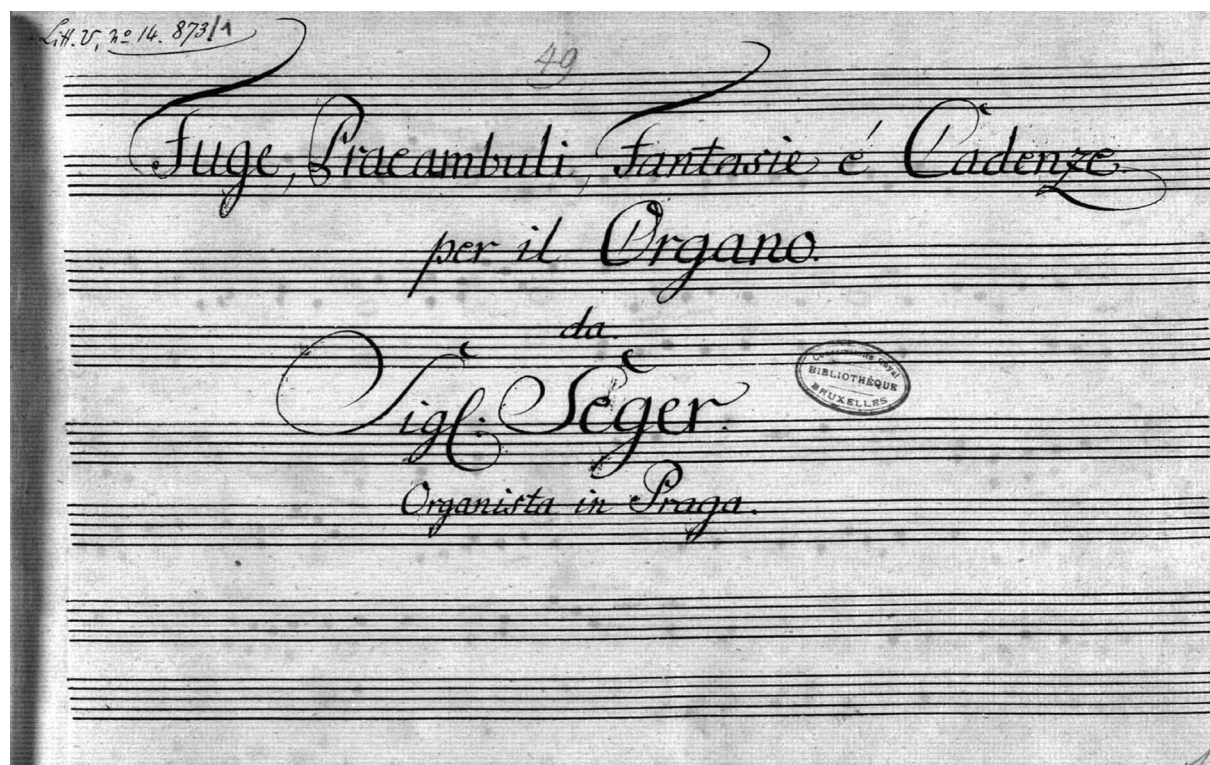 Litt. V, nº 14. 873/1
49
Fuge, Praeambuli, Fantasie é Cadenze
per il Organo.
da.
Sigl. Seger.
Conservatoire Royal
BIBLIOTHÈQUE
BRUXELLES
Organista in Praga.